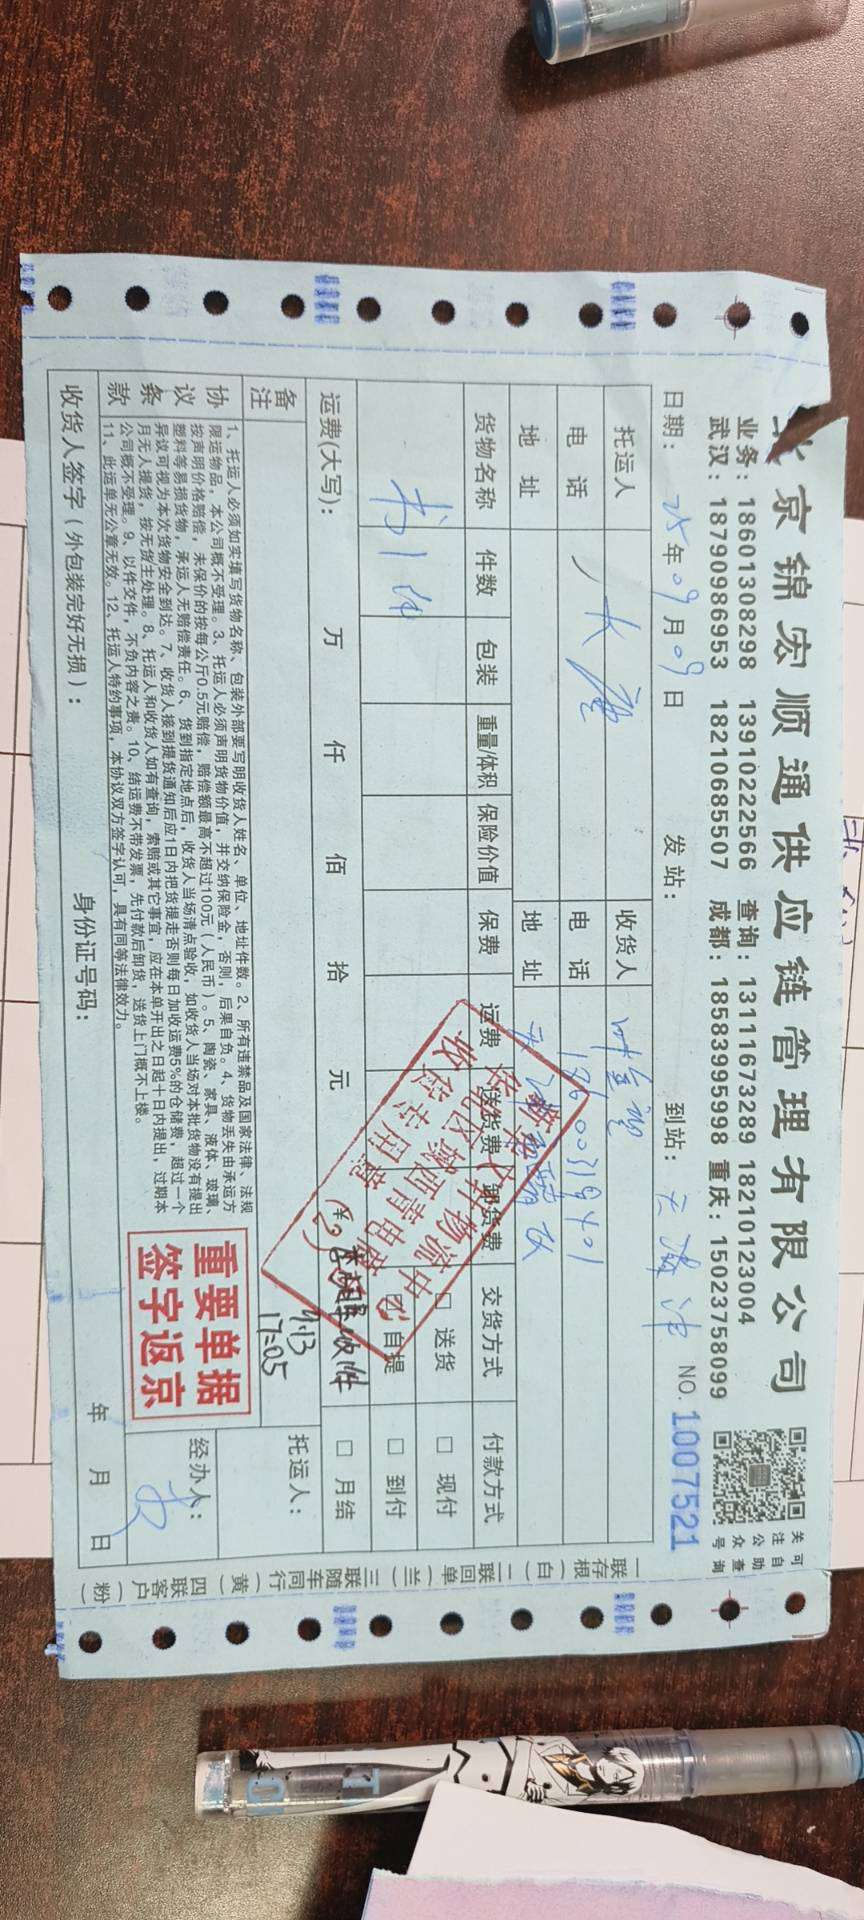 北京锦宏顺通供应链管理有限公司
业务：18601308298 13910222566 查询：13111673289 18210123004
武汉：18790986953 18210685507 成都：18583995998 重庆：15023758099
关注公众号
可自助查询
日期：25年09月09日 发站： 到站：天津 NO.1007521
托运人 大 收货人
电话 电话 18600319401
地址 地址 天津
货物名称 件数 包装 重量/体积 保险价值 保费 运费 送货费 卸货费 交货方式 付款方式
书 1件
□ 送货 □ 现付
□ 自提 □ 到付
运费(大写)： 万 仟 佰 拾 元 □ 月结
(2)
收件
9.13
17:05
备注
托运人：
协议条款
1、托运人必须如实填写货物名称、包装外部要写明收货人姓名、单位、地址件数。2、所有违禁品及国家法律、法规
限运物品，本公司概不受理。3、托运人必须声明货物价值，并交纳保险金，否则，后果自负。4、货物丢失由承运方
按声明价格赔偿，未保价的按每公斤0.5元赔偿，赔偿额最高不超过100元（人民币）。5、陶瓷、家具、液体、玻璃、
塑料等易损货物，承运人无赔偿责任。6、货到指定地点后，收货人当场清点验收，如收货人当场对本批货物没有提出
异议可视为本次货物安全到达。7、收货人接到提货通知后应1日内把货提走否则每日加收运费5%的仓储费，超过一个
月无人提货，按无货主处理。8、托运人和收货人如有查询，索赔或其它事宜，应在本单开出之日起十日内提出，过期本
公司概不受理。9、以件交件，不负内容之责。10、结运费不带发票，先付款后卸货，送货上门概不上楼。
11、此运单无公章无效。12、托运人特约事项，本协议双方签字认可，具有同等法律效力。
重要单据
签字返京
经办人：
收货人签字（外包装完好无损）： 身份证号码： 年 月 日
一联存根（白）二联回单（兰）三联随车同行（黄）四联客户（粉）